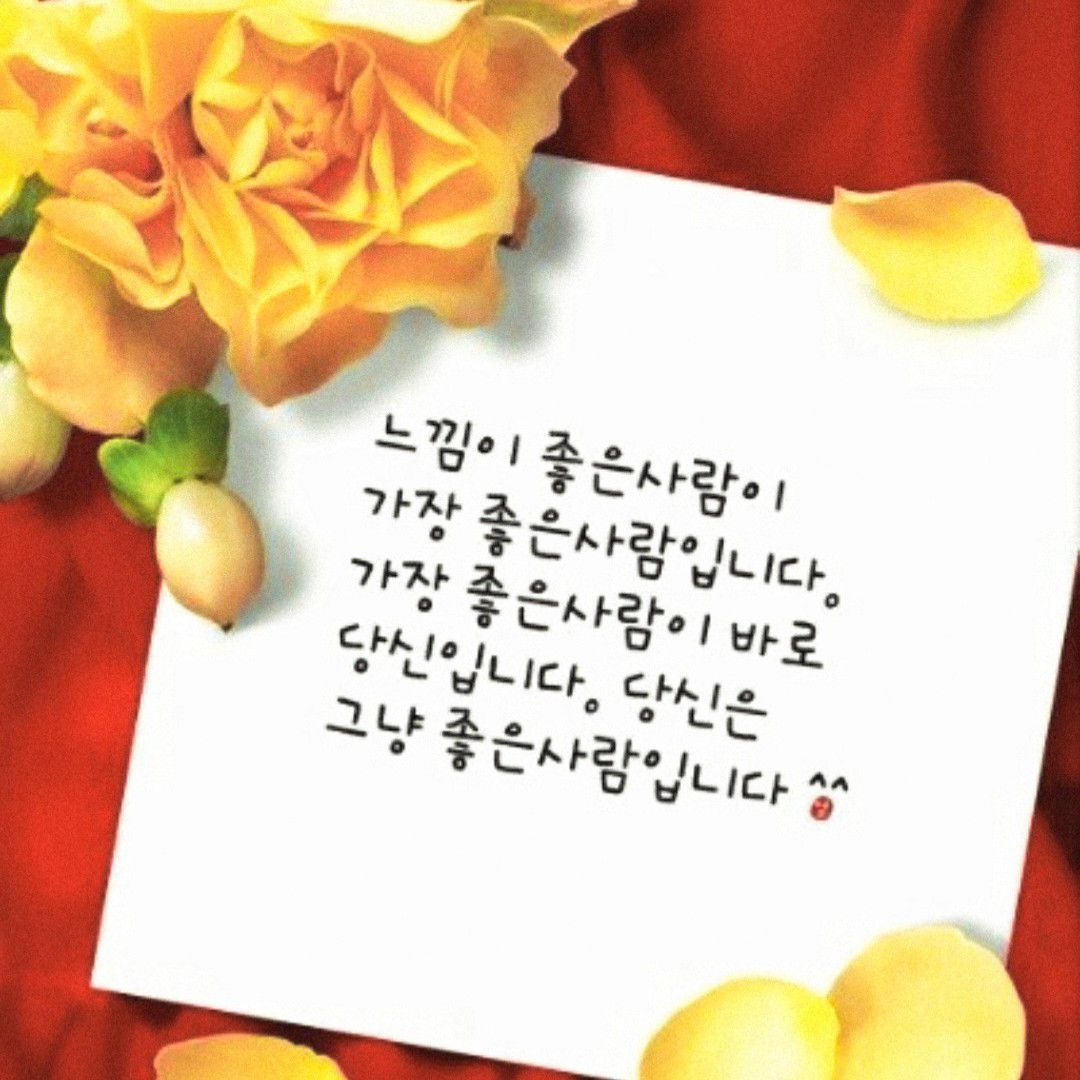 느낌이 좋은사람이
가장 좋은사람입니다.
가장 좋은사람이 바로
당신입니다. 당신은
그냥 좋은사람입니다 ^^